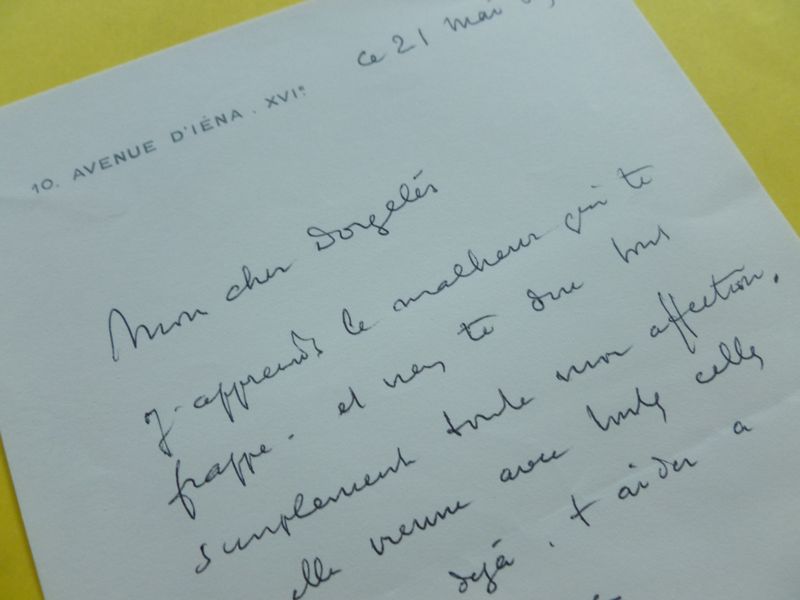 ce 21 mai
10. AVENUE D'IÉNA. XVIe
Mon cher Dorgelès
J'apprends le malheur qui te
frappe. et viens te dire tout
simplement toute mon affection.
elle vienne avec toutes celles
déjà. t'aider a